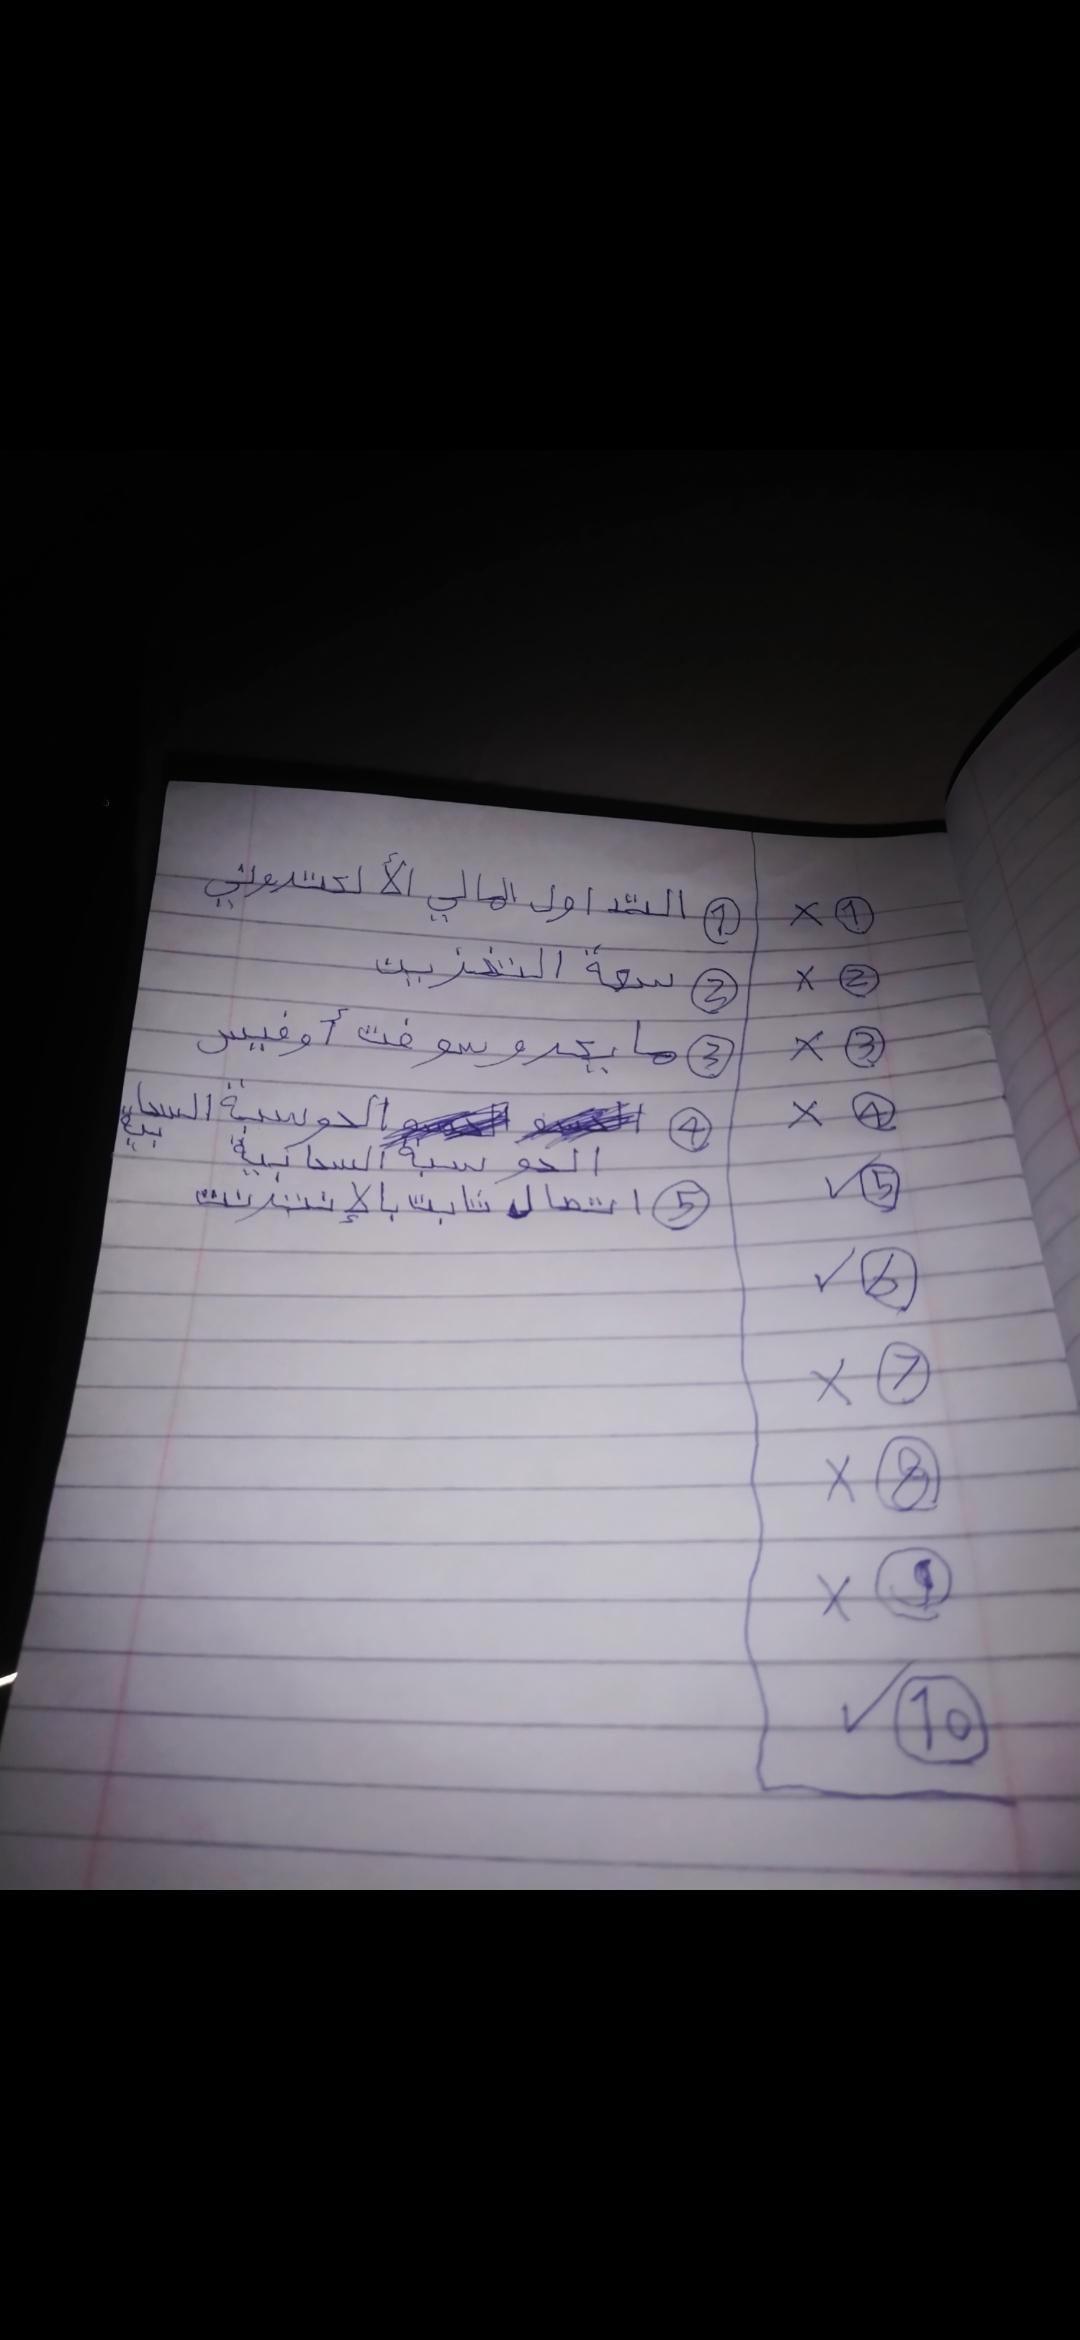 ① ×
② ×
③ ×
④ ×
⑤ ✓
⑥ ✓
⑦ ×
⑧ ×
⑨ ×
⑩ ✓
① التداول المالي الألكتروني
② سعة التخزين
③ مايكروسوفت أوفييس
④ الحوسبة السحابية
الحوسبة السحابية
⑤ اتصال ثابت بالإنترنت